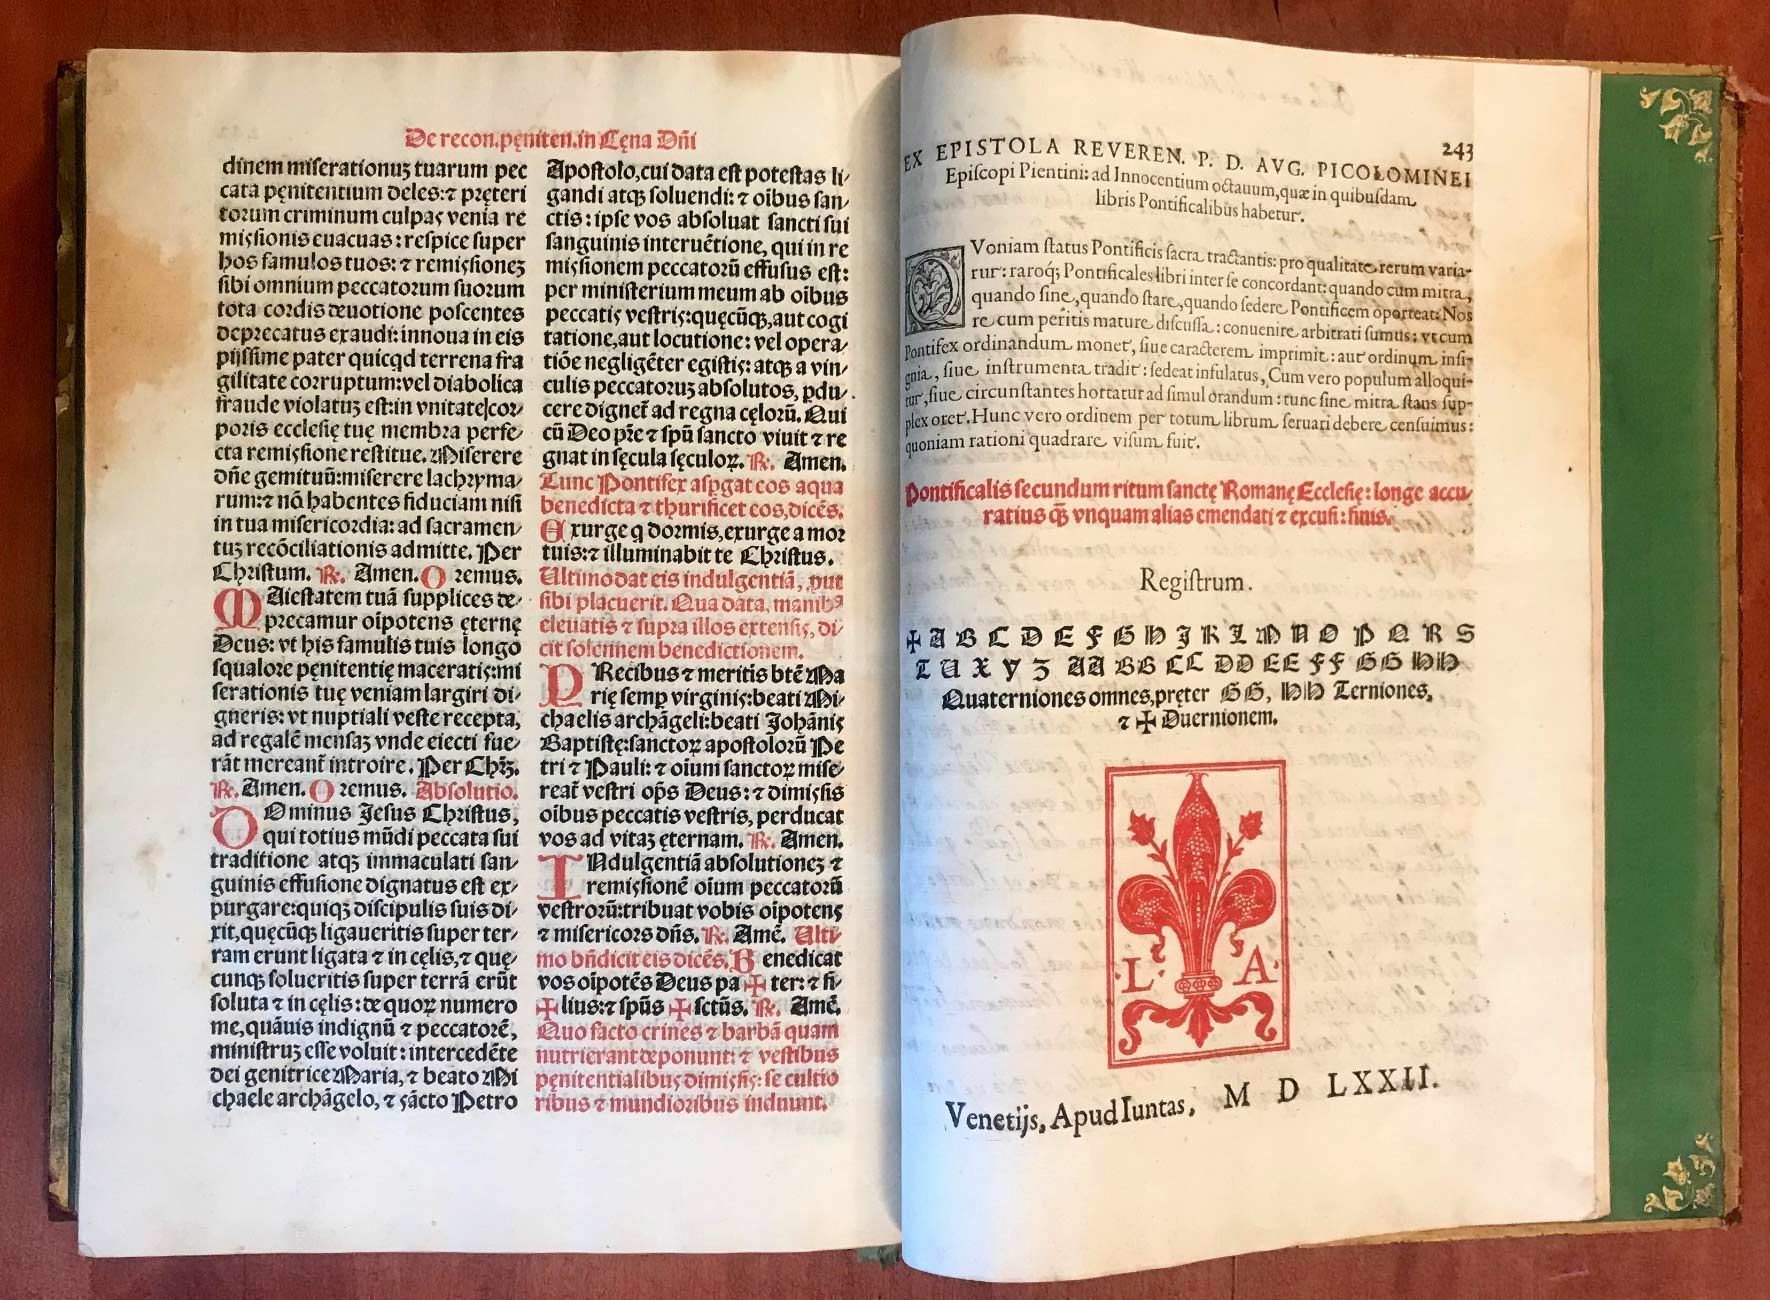 De recon. pęniten. in Cęna Dñi
dinem miserationuʒ tuarum pec
cata pęnitentium deles: ⁊ pręteri
torum criminum culpas venia re
missionis euacuas: respice super
hos famulos tuos: ⁊ remissioneʒ
sibi omnium peccatorum suorum
tota cordis deuotione poscentes
deprecatus exaudi: innoua in eis
pijssime pater quicqd terrena fra
gilitate corruptum: vel diabolica
fraude violatuʒ est: in vnitate cor-
poris ecclesię tuę membra perfe-
cta remissione restitue. Miserere
dñe gemituũ: miserere lachryma-
rum: ⁊ nõ habentes fiduciam nisi
in tua misericordia: ad sacramen-
tuʒ recõciliationis admitte. Per
Christum. ℟. Amen. Oremus.
MAiestatem tuã supplices de-
precamur oĩpotens ęternę
Deus: vt his famulis tuis longo
squalore pęnitentię maceratis: mi
serationis tuę veniam largiri di-
gneris: vt nuptiali veste recepta,
ad regalẽ mensaʒ vnde eiecti fue-
rãt mereant introire. Per Chřʒ.
℟. Amen. Oremus. Absolutio.
DOminus Jesus Christus,
qui totius mũdi peccata sui
traditione atqʒ immaculati san-
guinis effusione dignatus est ex-
purgare: quiqʒ discipulis suis di-
xit, quęcũqʒ ligaueritis super ter-
ram erunt ligata ⁊ in cęlis, ⁊ quę-
cunqʒ solueritis super terrã erũt
soluta ⁊ in cęlis: de quoꝝ numero
me, quãuis indignũ ⁊ peccatorẽ,
ministruʒ esse voluit: intercedẽte
dei genitrice Maria, ⁊ beato Mi
chaele archãgelo, ⁊ sãcto Petro
Apostolo, cui data est potestas li-
gandi atqʒ soluendi: ⁊ oĩbus san-
ctis: ipse vos absoluat sancti sui
sanguinis interuẽtione, qui in re
missionem peccatorũ effusus est:
per ministerium meum ab oĩbus
peccatis vestris: quęcũqʒ, aut cogi
tatione, aut locutione: vel opera-
tiõe negligẽter egistis: atqʒ a vin-
culis peccatoruʒ absolutos, ꝑdu-
cere dignet ad regna cęlorũ. Qui
cũ Deo pře ⁊ spũ sancto viuit ⁊ re
gnat in sęcula sęculoꝝ. ℟. Amen.
Tunc Pontifex aspgat eos aqua
benedicta ⁊ thurificet eos, dicẽs.
Exurge q dormis, exurge a mor
tuis: ⁊ illuminabit te Christus.
Ultimo dat eis indulgentiã, put
sibi placuerit. Qua data, manibꝰ
eleuatis ⁊ supra illos extensis, di-
cit solennem benedictionem.
PRecibus ⁊ meritis btẽ Ma
rię semp virginis: beati Mi-
chaelis archãgeli: beati Johãnis
Baptistę: sanctoꝝ apostolorũ Pe
tri ⁊ Pauli: ⁊ oiuni sanctoꝝ mise-
reat vestri op̃s Deus: ⁊ dimissis
oĩbus peccatis vestris, perducat
vos ad vitaʒ ęternam. ℟. Amen.
INdulgentiã absolutioneʒ ⁊
remissionẽ oĩum peccatorũ
vestrorũ: tribuat vobis oĩpotens
⁊ misericors dñs. ℟. Amẽ. Ulti-
mo bñdicit eis dicẽs. Benedicat
vos oĩpotẽs Deus pa ✠ ter: ⁊ fi-
✠ lius: ⁊ spũs ✠ sctũs. ℟. Amẽ.
Quo facto crines ⁊ barbã quam
nutrierant deponunt: ⁊ vestibus
pęnitentialibus dimissis: se cultio
ribus ⁊ mundioribus induunt.
243
EX EPISTOLA REVEREN. P. D. AVG. PICOLOMINEI
Episcopi Pientini: ad Innocentium octauum, quæ in quibusdam
libris Pontificalibus habetur.
QVoniam status Pontificis sacra tractantis: pro qualitate rerum varia-
tur: raroq; Pontificales libri inter se concordant: quando cum mitra,
quando sine, quando stare, quando sedere Pontificem oporteat: Nos
re cum peritis mature discussa: conuenire arbitrati sumus: vt cum
Pontifex ordinandum monet, siue caracterem imprimit: aut ordinum insi-
gnia, siue instrumenta tradit: sedeat infulatus, Cum vero populum alloqui-
tur, siue circunstantes hortatur ad simul orandum: tunc sine mitra stans sup-
plex oret. Hunc vero ordinem per totum librum seruari debere censuimus:
quoniam rationi quadrare visum fuit.
Pontificalis secundum ritum sanctę Romanę Ecclesię: longe accu-
ratius qȝ̃ vnquam alias emendati ⁊ excusi: finis.
Registrum.
✠ A B C D E F G H I K L M N O P Q R S
T U X Y Z AA BB CC DD EE FF GG HH
Quaterniones omnes, pręter GG, HH Terniones,
⁊ ✠ Duernionem.
L. A
Venetijs, Apud Iuntas, M D LXXII.